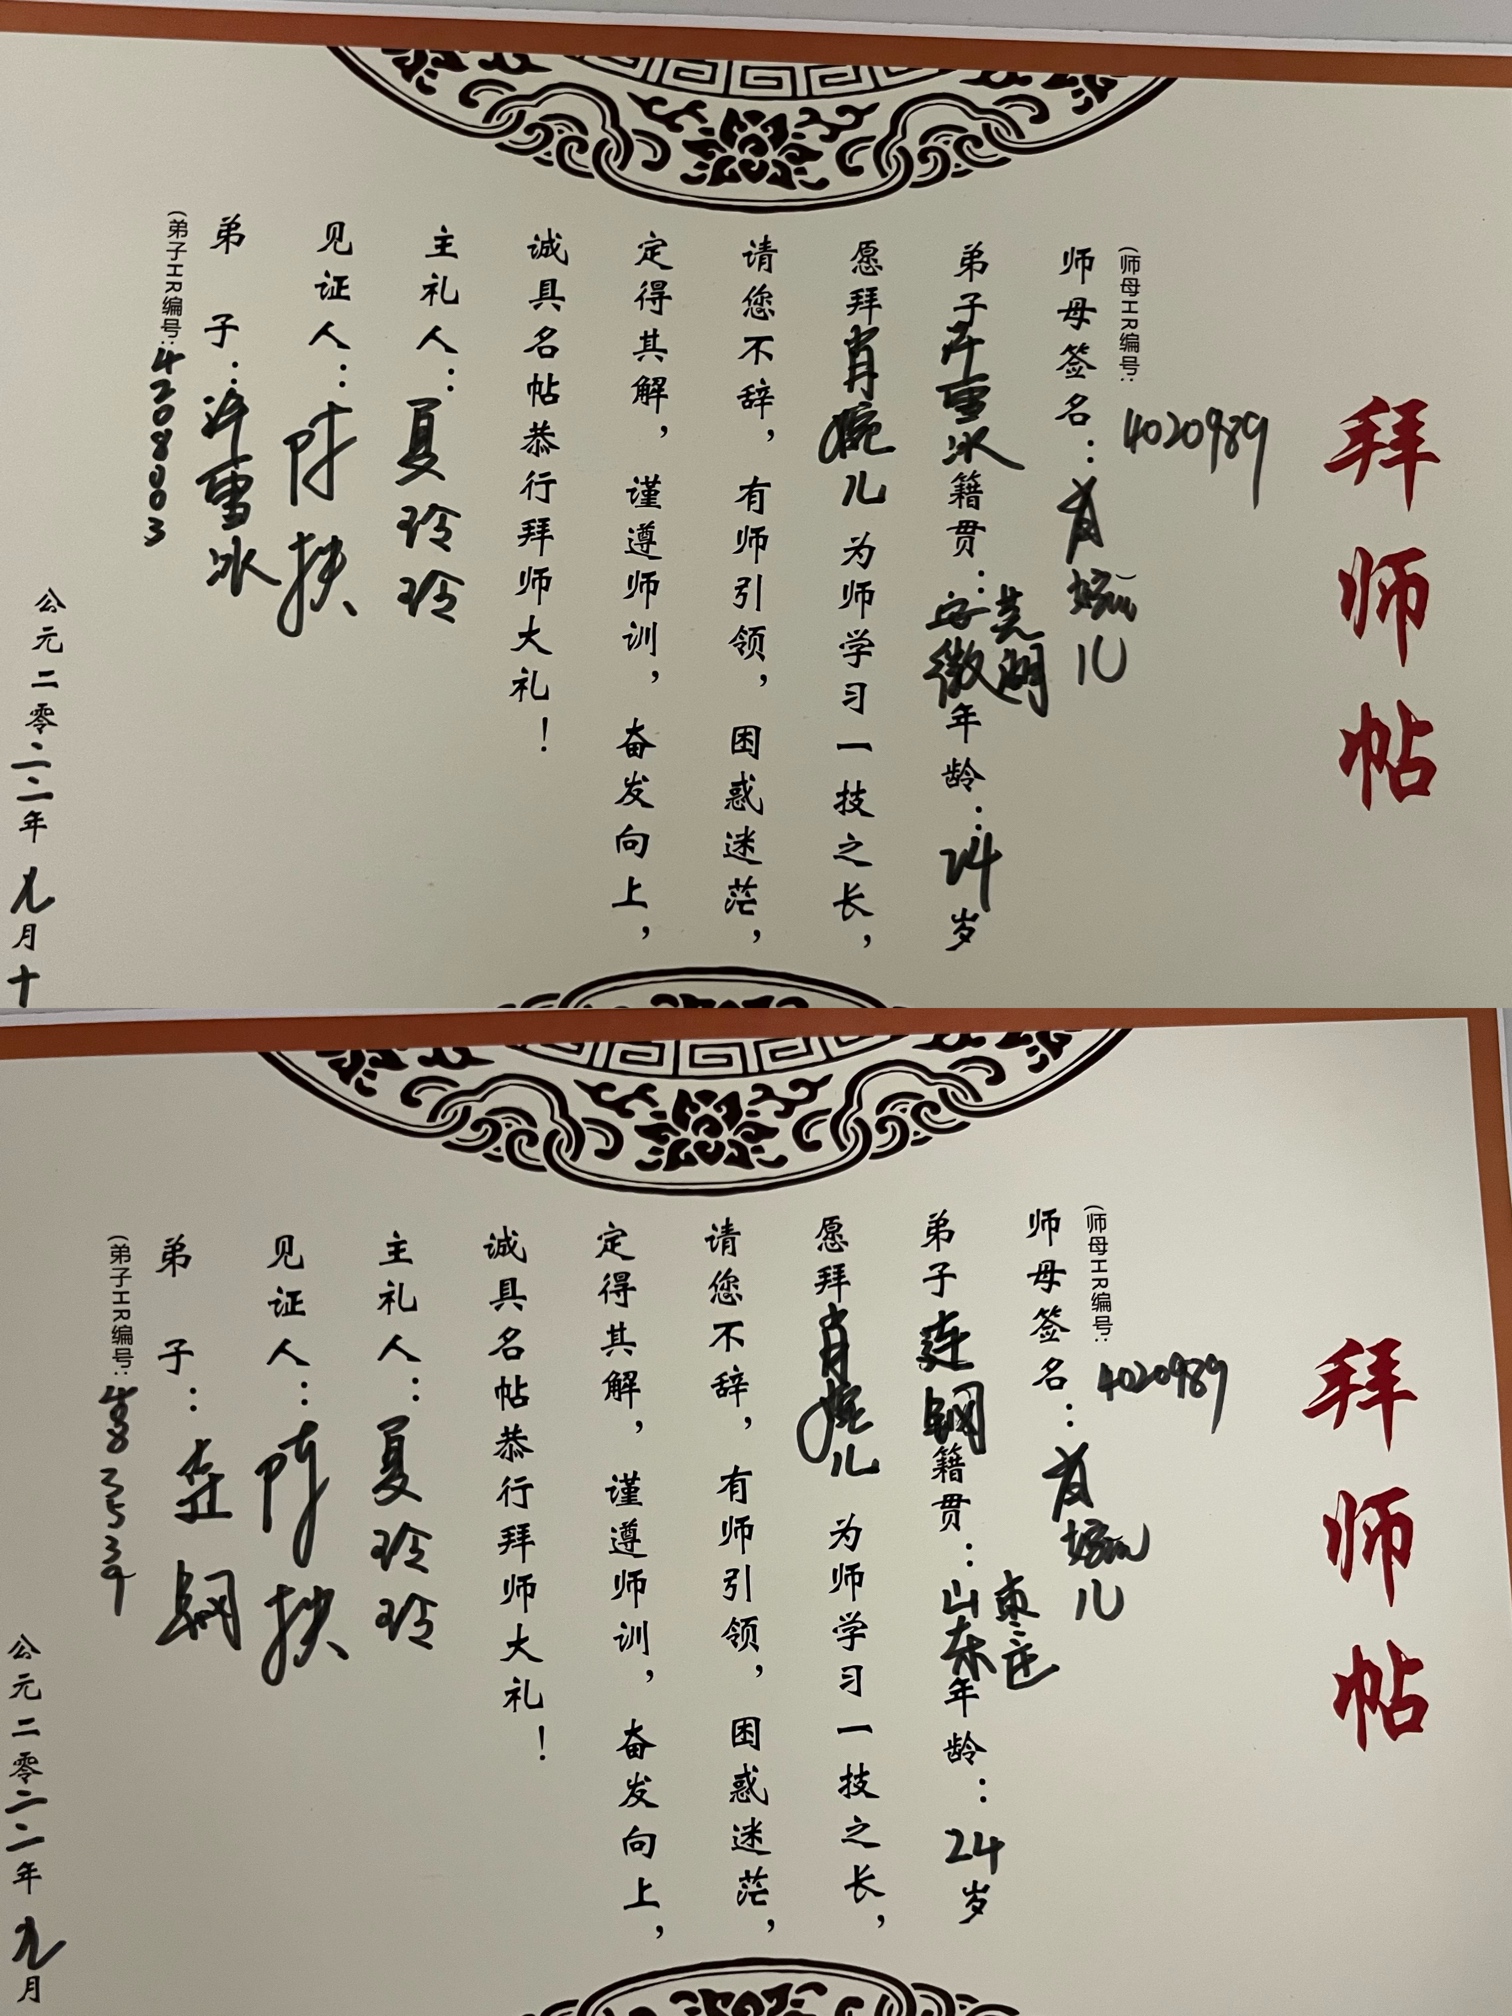 拜师帖
(师母HR编号:4020989
师母签名：肖婉儿
弟子许雪冰籍贯：安徽芜湖年龄：24岁
愿拜肖婉儿为师学习一技之长，
请您不辞，有师引领，困惑迷茫，
定得其解，谨遵师训，奋发向上，
诚具名帖恭行拜师大礼！
主礼人：夏玲玲
见证人：陈扶
弟子：许雪冰
(弟子HR编号:4208003
公元二零二二年九月十
拜师帖
(师母HR编号:4020989
师母签名：肖婉儿
弟子连钢籍贯：山东枣庄年龄：24岁
愿拜肖婉儿为师学习一技之长，
请您不辞，有师引领，困惑迷茫，
定得其解，谨遵师训，奋发向上，
诚具名帖恭行拜师大礼！
主礼人：夏玲玲
见证人：陈扶
弟子：连钢
(弟子HR编号:
公元二零二二年九月